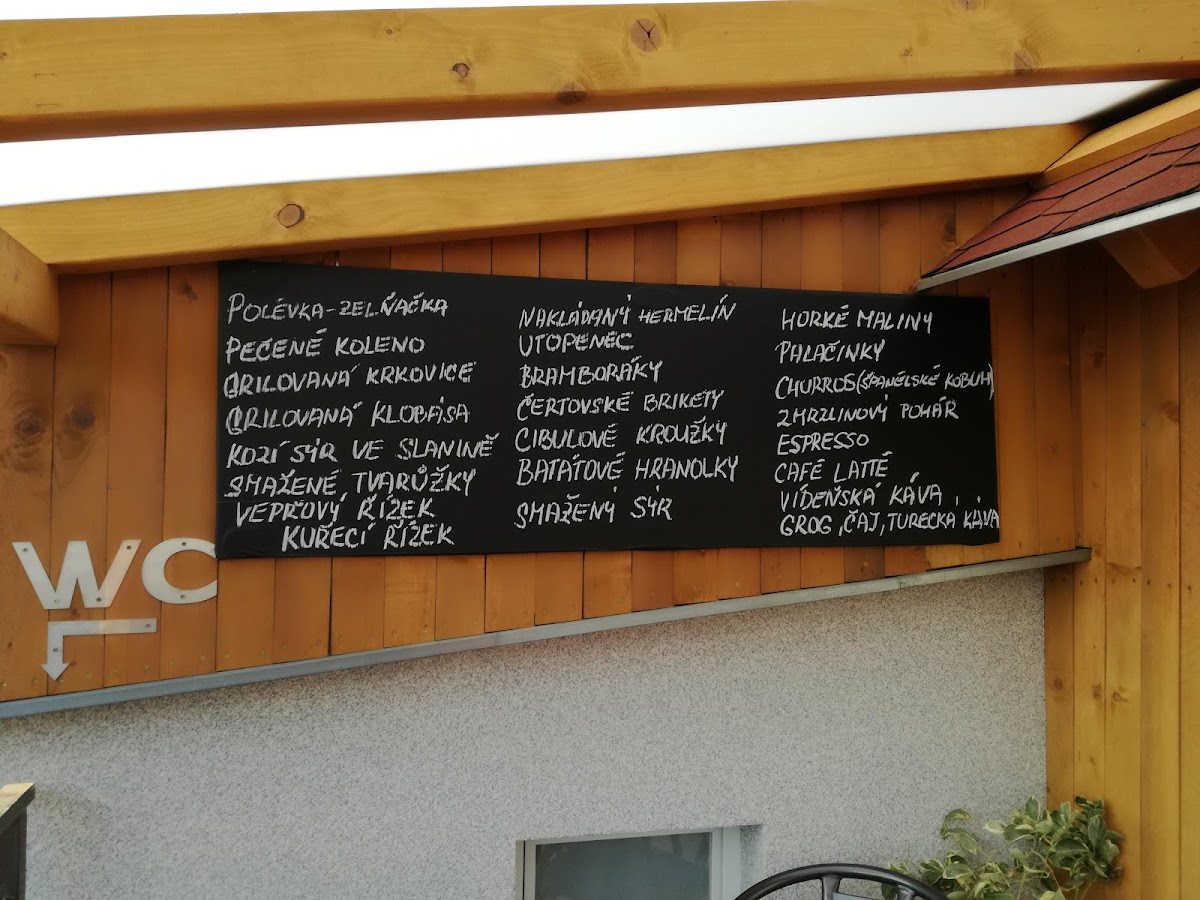 POLÉVKA-ZELŇAČKA
PEČENÉ KOLENO
GRILOVANÁ KRKOVICE
GRILOVANÁ KLOBÁSA
KOZÍ SÝR VE SLANINĚ
SMAŽENÉ TVARŮŽKY
VEPŘOVÝ ŘÍZEK
KUŘECÍ ŘÍZEK
NAKLÁDANÝ HERMELÍN
UTOPENEC
BRAMBORÁKY
ČERTOVSKÉ BRIKETY
CIBULOVÉ KROUŽKY
BATÁTOVÉ HRANOLKY
SMAŽENÝ SÝR
HORKÉ MALINY
PALAČINKY
CHURROS(ŠPANĚLSKÉ KOBLIH)
ZMRZLINOVÝ POHÁR
ESPRESSO
CAFÉ LATTÉ
VÍDEŇSKÁ KÁVA
GROG, ČAJ, TURECKÁ KÁVA
WC